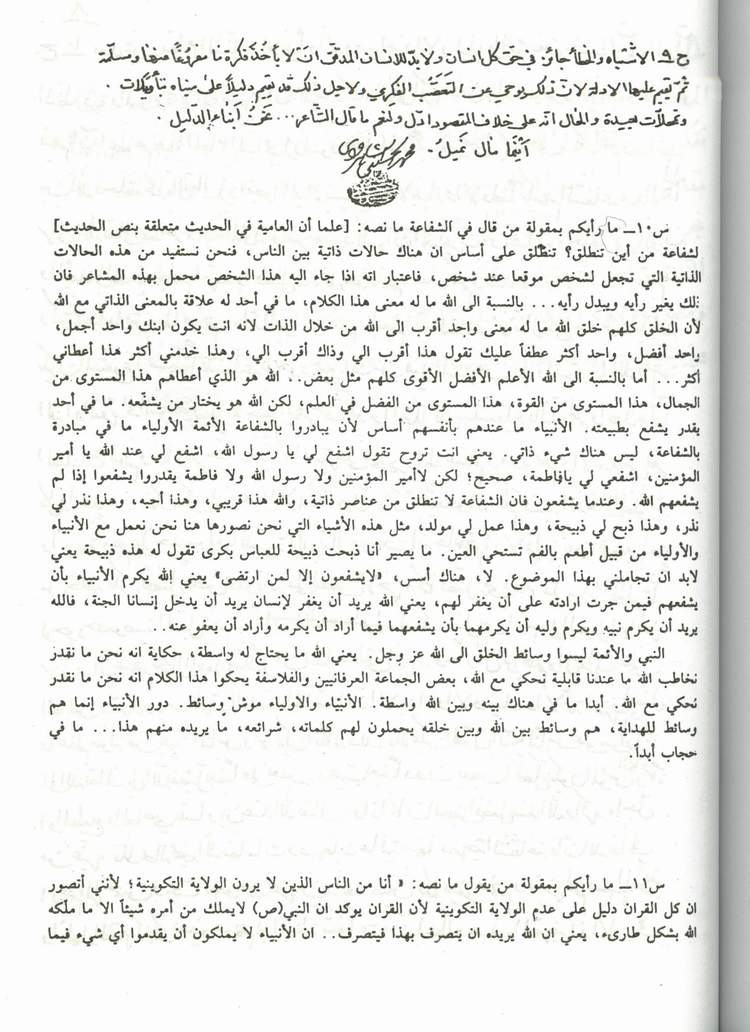 ج ٩ الاشتباه والخطأ جائز في حق كل انسان ولابد للانسان المدقق ان لا يأخذ فكرة ما مفروغاً عنها ومسلمة
ثم تقيم عليها الادلة لان ذلك يوحي عن التعصب الفكري ولاجل ذلك قد تقيم دليلاً على مبناه بتأويلات
وتمحلات بعيدة والحال انه على خلاف المقصود ادل ولنعم ما قال الشاعر... نحن أبناء الدليل
أينما مال نميل.
س١٠ــ ما رأيكم بمقولة من قال في الشفاعة ما نصه: [علما أن العامية في الحديث متعلقة بنص الحديث]
لشفاعة من أين تنطلق؟ تنطلق على أساس ان هناك حالات ذاتية بين الناس، فنحن نستفيد من هذه الحالات
الذاتية التي تجعل لشخص موقعا عند شخص، فاعتبار انه اذا جاء اليه هذا الشخص محمل بهذه المشاعر فان
ذلك يغير رأيه ويبدل رأيه... بالنسبة الى الله ما له معنى هذا الكلام، ما في أحد له علاقة بالمعنى الذاتي مع الله
لأن الخلق كلهم خلق الله ما له معنى واحد أقرب الى الله من خلال الذات لانه انت يكون ابنك واحد أجمل،
واحد أفضل، واحد أكثر عطفاً عليك تقول هذا أقرب الي وذاك أقرب الي، وهذا خدمني أكثر هذا أعطاني
أكثر... أما بالنسبة الى الله الأعلم الأفضل الأقوى كلهم مثل بعض.. الله هو الذي أعطاهم هذا المستوى من
الجمال، هذا المستوى من القوة، هذا المستوى من الفضل في العلم، لكن الله هو يختار من يشفّعه. ما في أحد
يقدر يشفع بطبيعته. الأنبياء ما عندهم بأنفسهم أساس لأن يبادروا بالشفاعة الأئمة الأولياء ما في مبادرة
بالشفاعة، ليس هناك شيء ذاتي. يعني انت تروح تقول اشفع لي يا رسول الله، اشفع لي عند الله يا أمير
المؤمنين، اشفعي لي يافاطمة، صحيح؛ لكن لاأمير المؤمنين ولا رسول الله ولا فاطمة يقدروا يشفعوا إذا لم
يشفعهم الله. وعندما يشفعون فان الشفاعة لا تنطلق من عناصر ذاتية، والله هذا قريبي، وهذا أحبه، وهذا نذر لي
نذر، وهذا ذبح لي ذبيحة، وهذا عمل لي مولد، مثل هذه الأشياء التي نحن نصورها هنا نحن نعمل مع الأنبياء
والأولياء من قبيل أطعم بالفم تستحي العين. ما يصير أنا ذبحت ذبيحة للعباس بكرى تقول له هذه ذبيحة يعني
لابد ان تجاملني بهذا الموضوع. لا، هناك أسس، «لايشفعون إلا لمن ارتضى» يعني الله يكرم الأنبياء بأن
يشفعهم فيمن جرت ارادته على أن يغفر لهم، يعني الله يريد أن يغفر لإنسان يريد أن يدخل إنسانا الجنة، فالله
يريد أن يكرم نبيه ويكرم وليه أن يكرمهما بأن يشفعهما فيما أراد أن يكرمه وأراد أن يعفو عنه..
النبي والأئمة ليسوا وسائط الخلق الى الله عز وجل. يعني الله ما يحتاج له واسطة، حكاية انه نحن ما نقدر
نخاطب الله ما عندنا قابلية نحكي مع الله، بعض الجماعة العرفانيين والفلاسفة يحكوا هذا الكلام انه نحن ما نقدر
نحكي مع الله. أبدا ما في هناك بينه وبين الله واسطة. الأنبياء والاولياء موش وسائط. دور الأنبياء إنما هم
وسائط للهداية، هم وسائط بين الله وبين خلقه يحملون لهم كلماته، شرائعه، ما يريده منهم هذا... ما في
حجاب أبداً.
س١١ــ ما رأيكم بمقولة من يقول ما نصه: « أنا من الناس الذين لا يرون الولاية التكوينية؛ لأنني أتصور
ان كل القران دليل على عدم الولاية التكوينية لأن القران يوكد ان النبي(ص) لايملك من أمره شيئاً الا ما ملّكه
الله بشكل طارىء، يعني ان الله يريده ان يتصرف بهذا فيتصرف.. ان الأنبياء لا يملكون أن يقدموا أي شيء فيما